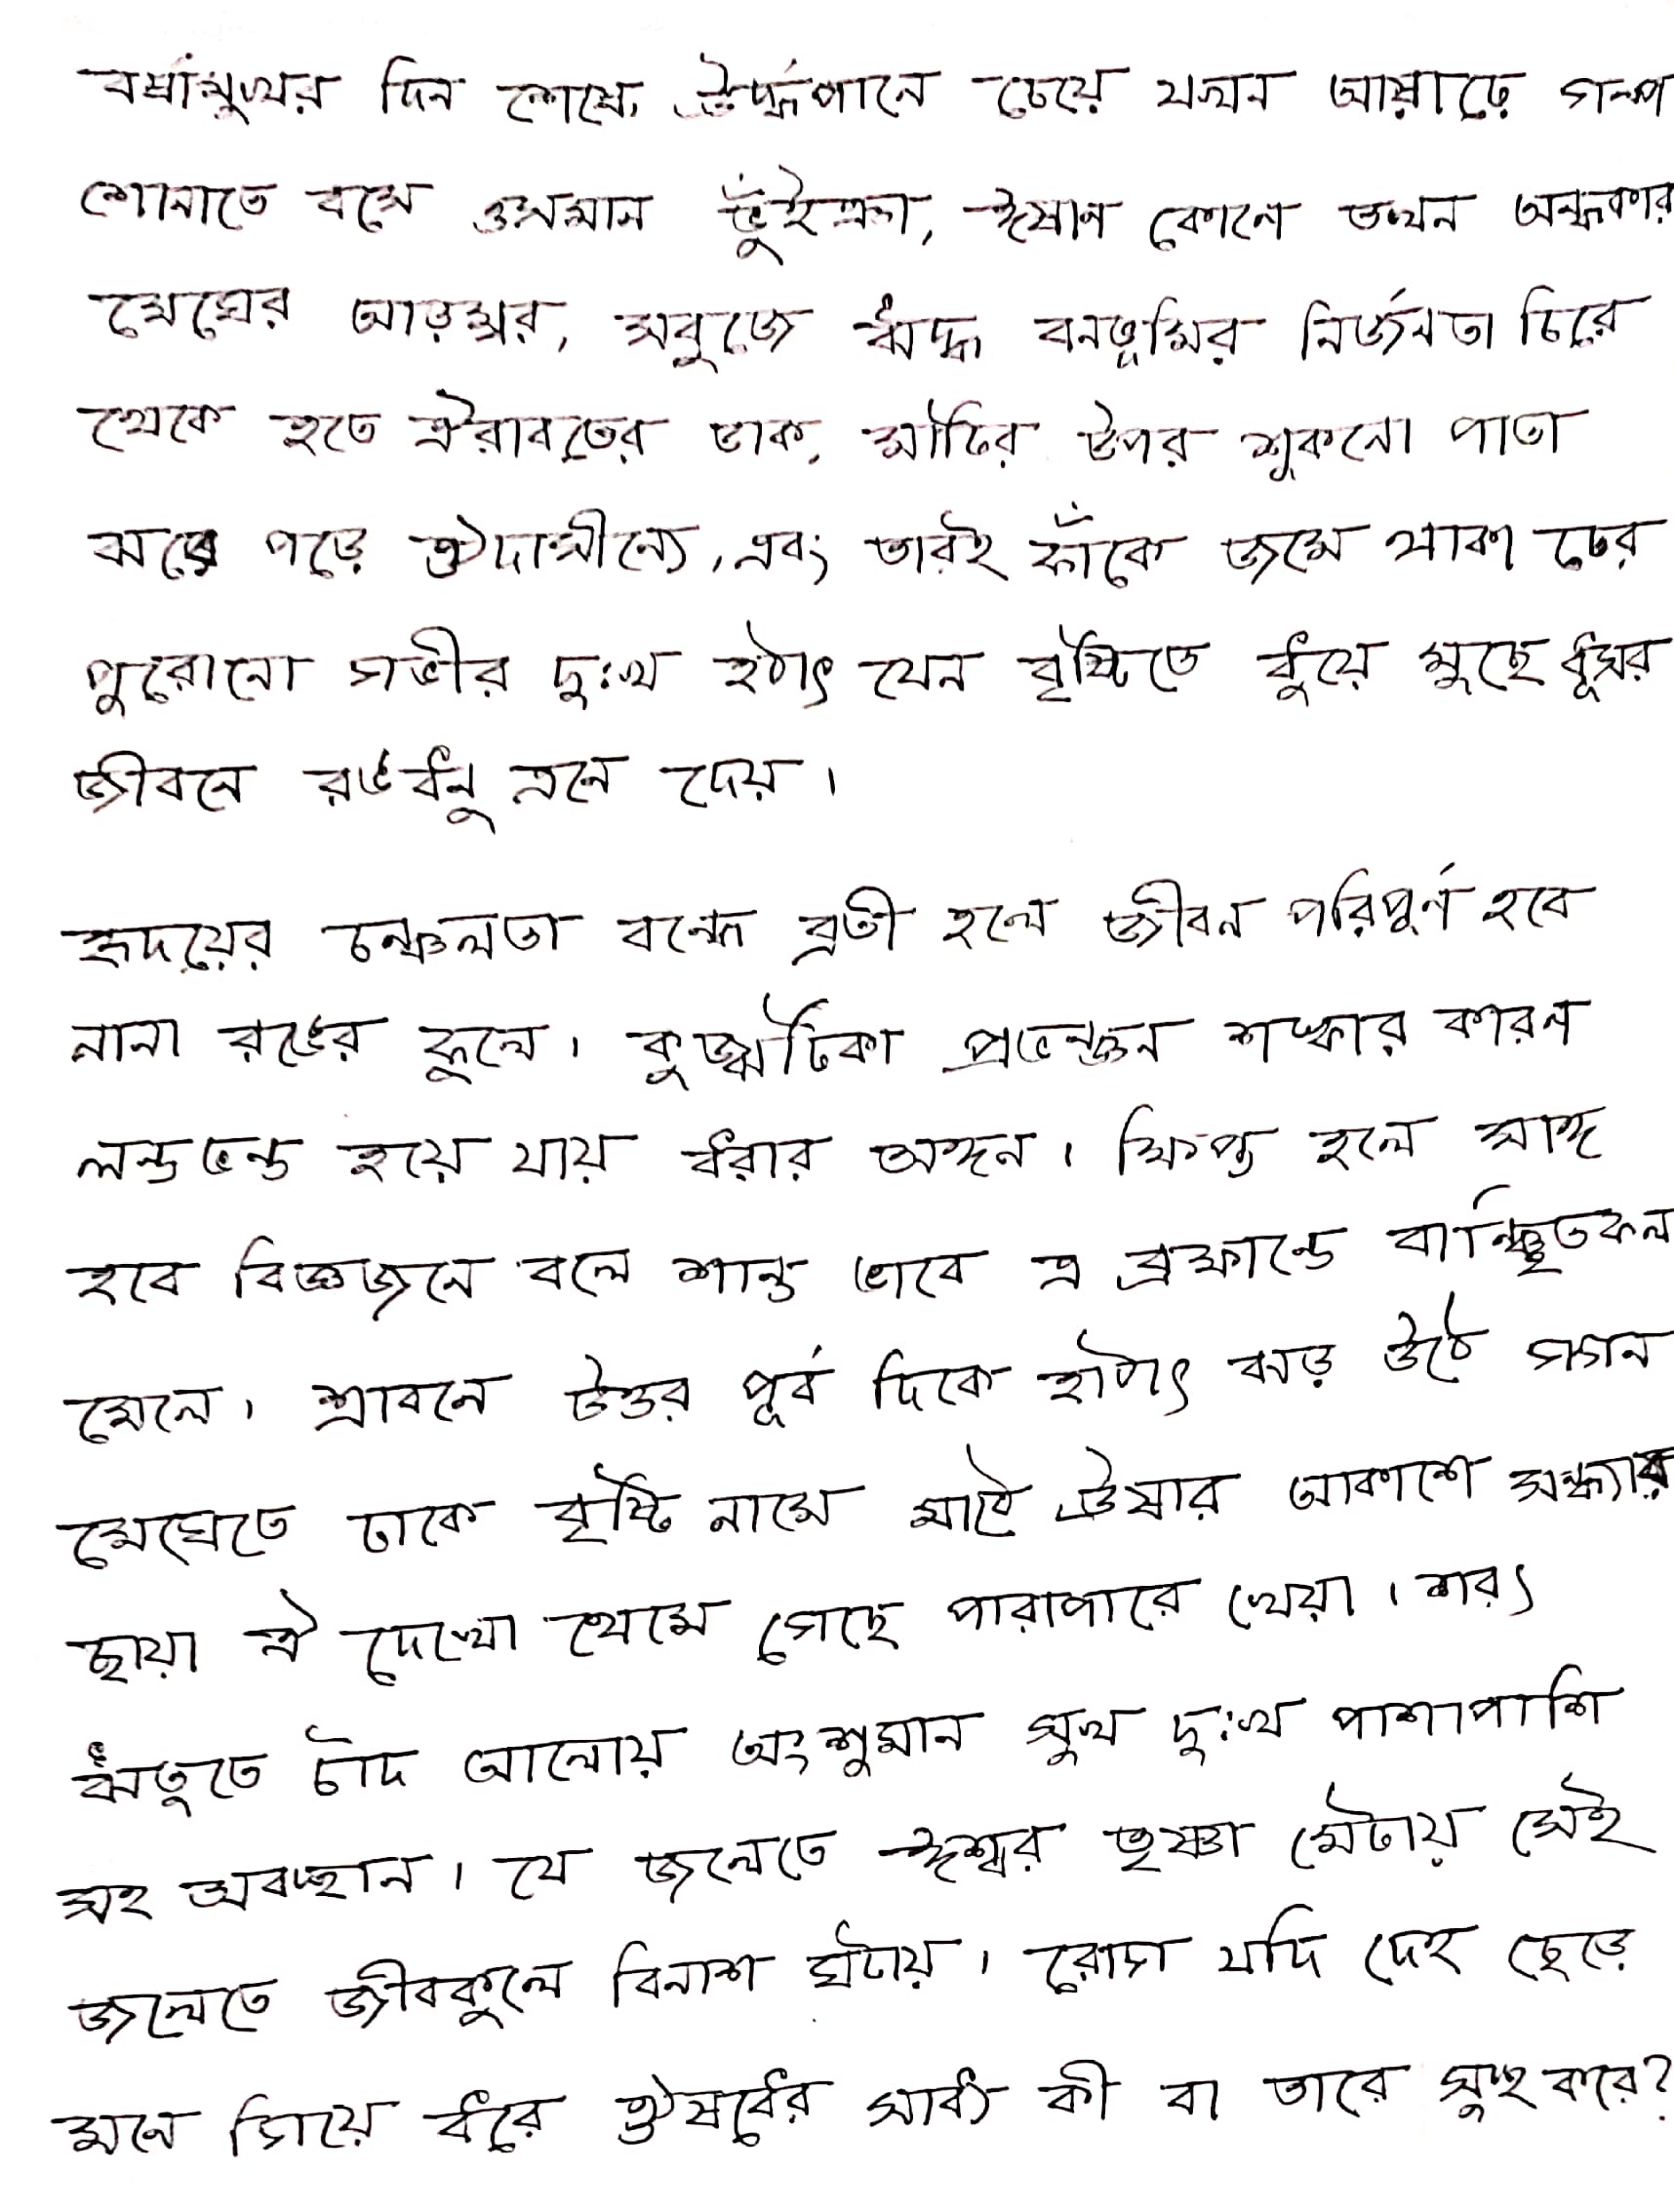 বর্ষামুখর দিন শেষে, ঊর্দ্ধপানে চেয়ে যখন আষাঢ়ে গল্প
শোনাতে বসে ওসমান ভুঁইঞা, ঈষান কোনে তখন অন্ধকার
মেঘের আড়ম্বর, সবুজে ঋদ্ধ বনভূমির নির্জনতা চিরে
থেকে হতে ঐরাবতের ডাক, মাটির উপর শুকনো পাতা
ঝরে পড়ে ঔদাসীন্যে, এবং তারই ফাঁকে জমে থাকা ঢের
পুরোনো গভীর দুঃখ হঠাৎ যেন বৃষ্টিতে ধুয়ে মুছে ধূসর
জীবনে রঙধনু এনে দেয়।
হৃদয়ের চঞ্চলতা বন্ধে ব্রতী হলে জীবন পরিপূর্ণ হবে
নানা রঙের ফুলে। কুজ্ঝটিকা প্রভঞ্জন শঙ্কার কারণ
লন্ডভন্ড হয়ে যায় ধরার অঙ্গন। ক্ষিপ্ত হলে সাঙ্গ
হবে বিজ্ঞজনে বলে শান্ত ভাবে এ ব্রহ্মান্ডে বাঞ্ছিতফল
মেলে। শ্রাবনে উত্তর পূর্ব দিকে হঠাৎ ঝড় উঠে গগন
মেঘেতে ঢাকে বৃষ্টি নামে মাঠে ঊষার আকাশে সন্ধ্যার
ছায়া ঐ দেখো থেমে গেছে পারাপারে খেয়া। শরৎ
ঋতুতে চাঁদ আলোয় অংশুমান সুখ দুঃখ পাশাপাশি
সহ অবস্থান। যে জলেতে ঈশ্বর তৃষ্ণা মেটায় সেই
জলেতে জীবকুলে বিনাশ ঘটায়। রোগ যদি দেহ ছেড়ে
মনে গিয়ে ধরে ঔষধের সাধ্য কী বা তারে সুস্থ করে?